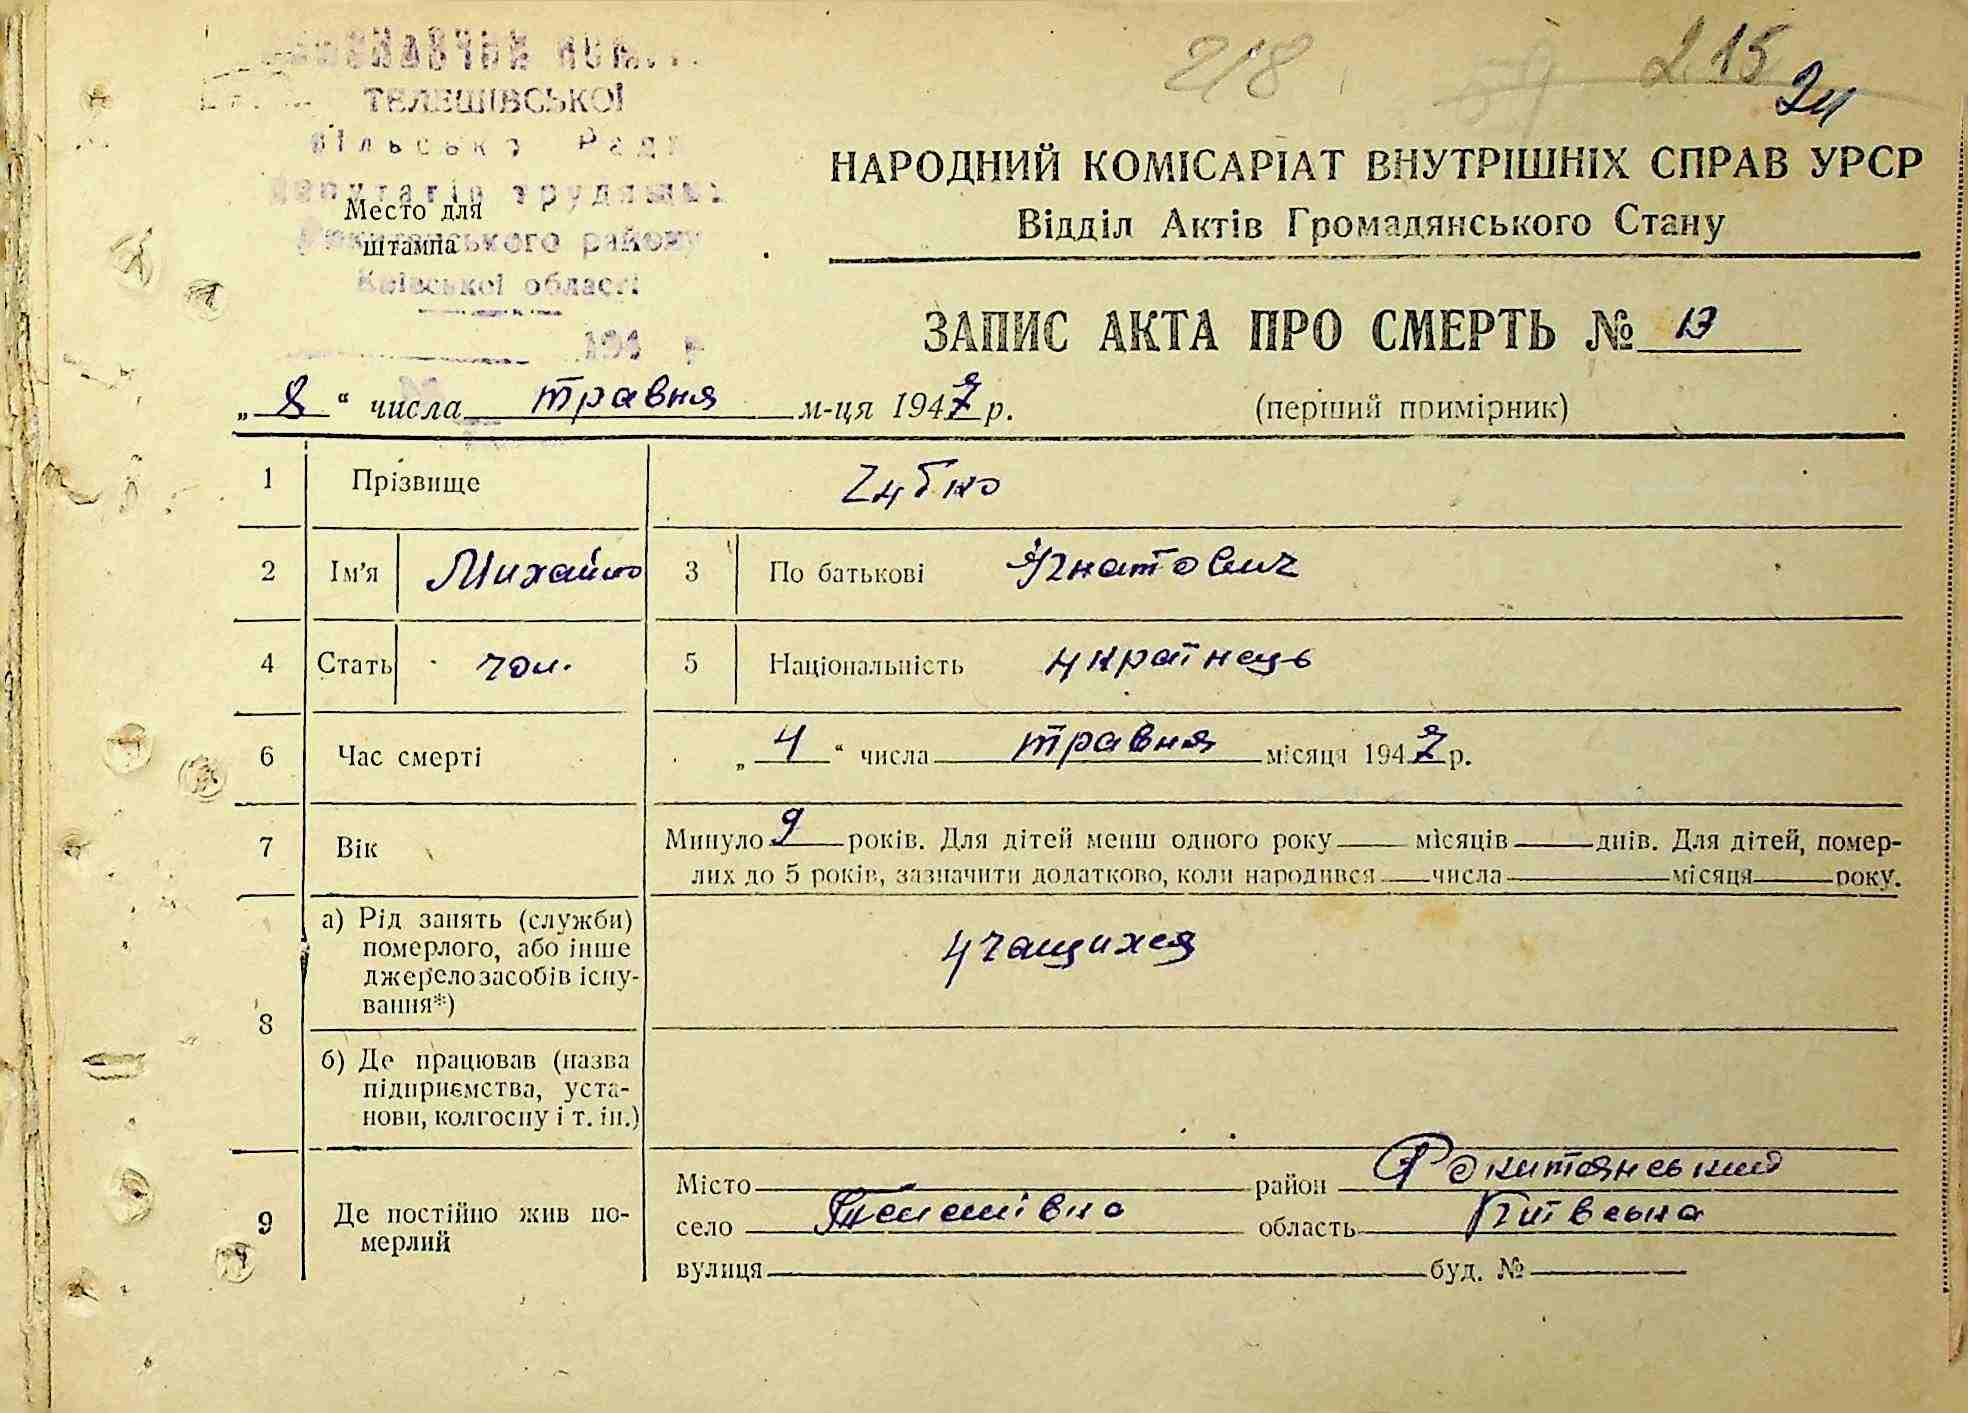 218
59
215
24
ТЕЛЕШІВСЬКОЇ
депутатів трудящих
Рокитянського району
Київської області
194 р
Место для
штампа
НАРОДНИЙ КОМІСАРІАТ ВНУТРІШНІХ СПРАВ УРСР
Відділ Актів Громадянського Стану
ЗАПИС АКТА ПРО СМЕРТЬ № 13
„ 8 “ числа травня м-ця 1947 р. (перший примірник)
1 Прізвище
2 Ім'я Михайло 3 По батькові Ігнатович
4 Стать чол. 5 Національність українець
6 Час смерті „ 4 “ числа травня місяця 1947 р.
7 Вік Минуло 9 років. Для дітей менш одного року місяців днів. Для дітей, помер-
лих до 5 років, зазначити додатково, коли народився числа місяця року.
8 а) Рід занять (служби)
померлого, або інше
джерело засобів існу-
вання*)
учащихся
б) Де працював (назва
підприємства, уста-
нови, колгоспу і т. ін.)
9 Де постійно жив по-
мерлий
Місто район Рокитянський
село Телешівка область Київська
вулиця буд. №